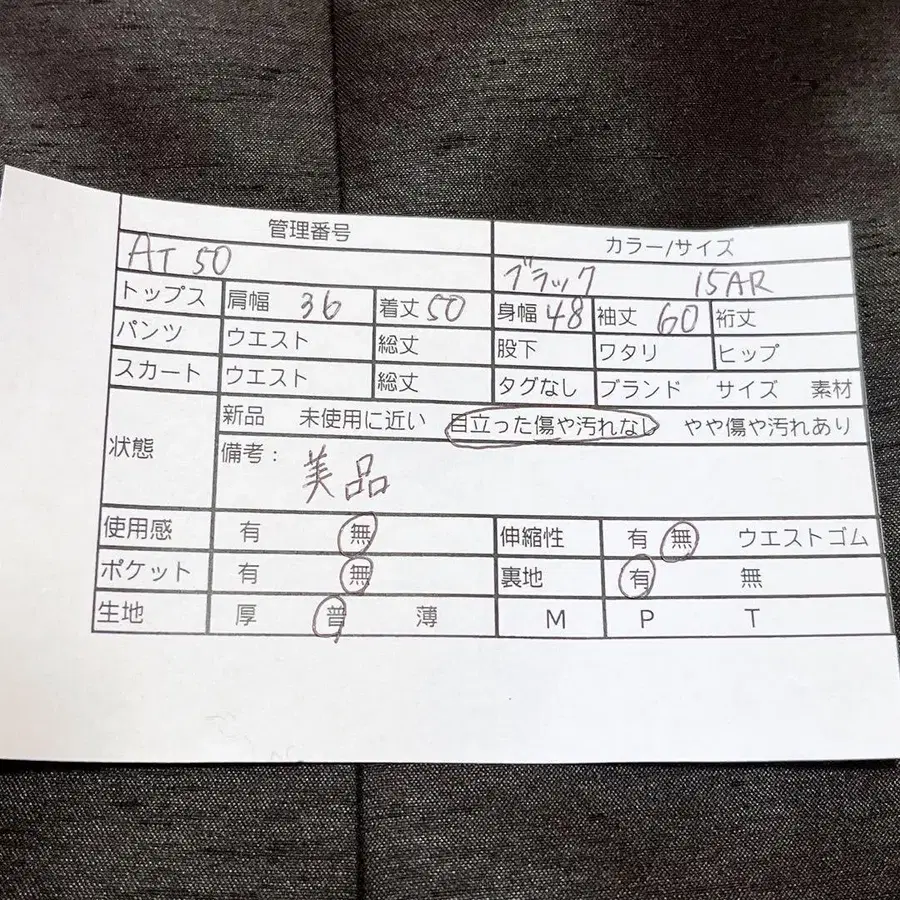 管理番号 カラー/サイズ
AT 50 ブラック 15AR
トップス 肩幅 36 着丈 50 身幅 48 袖丈 60 裄丈
パンツ ウエスト 総丈 股下 ワタリ ヒップ
スカート ウエスト 総丈 タグなし ブランド サイズ 素材
状態 新品 未使用に近い 目立った傷や汚れなし やや傷や汚れあり
備考: 美品
使用感 有 無 伸縮性 有 無 ウエストゴム
ポケット 有 無 裏地 有 無
生地 厚 普 薄 M P T